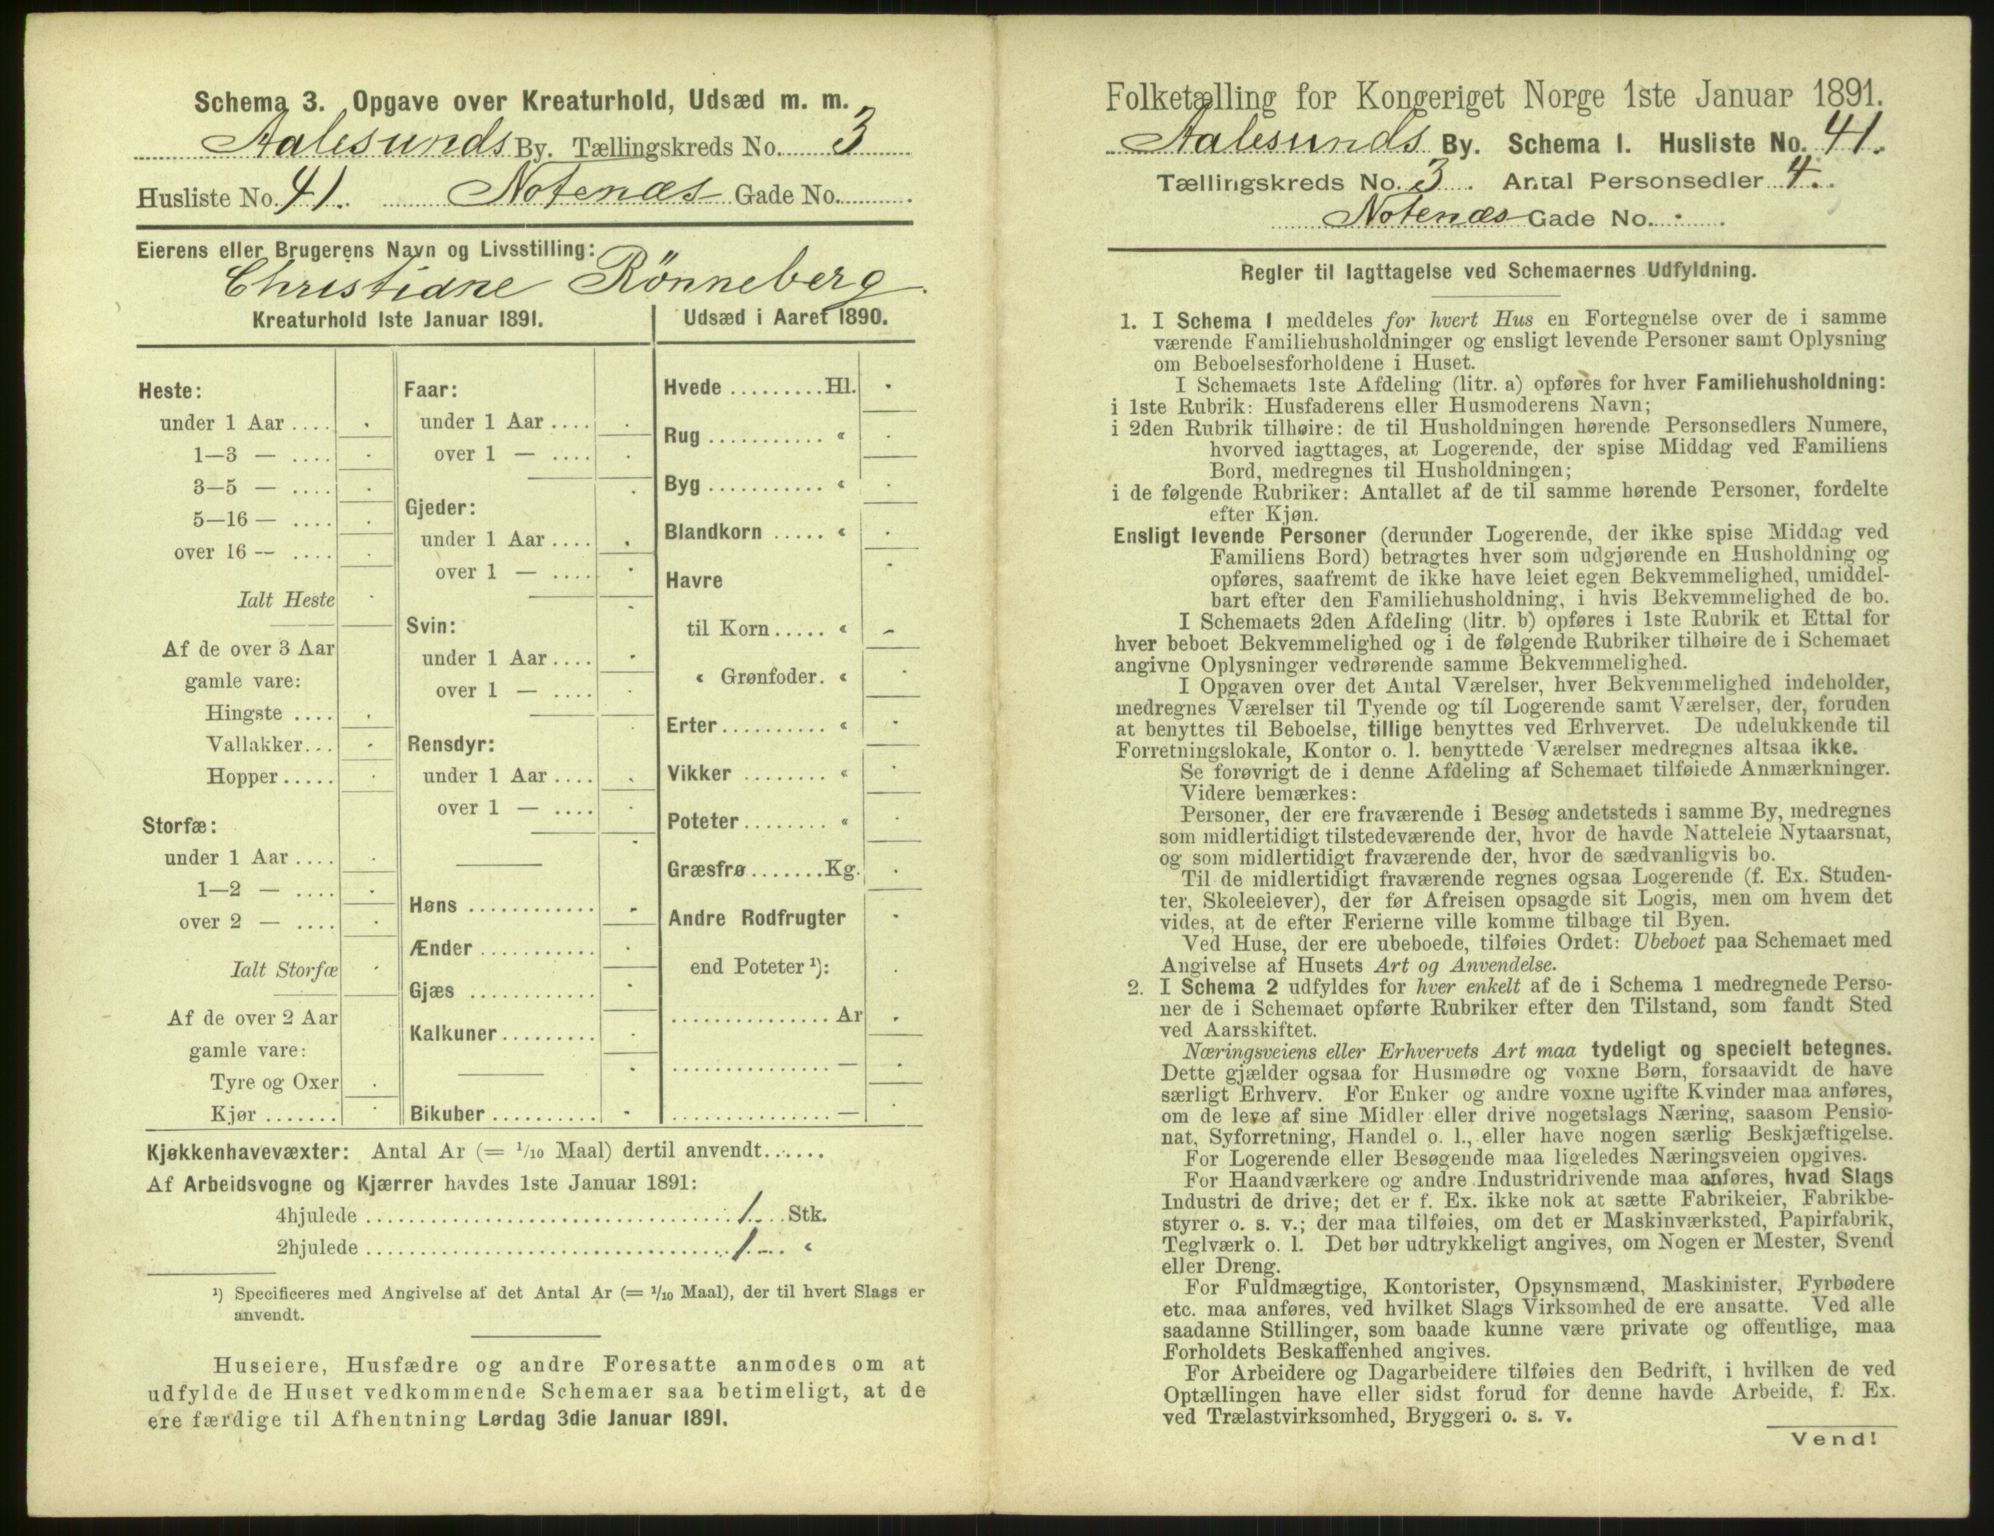 Schema 3. Opgave over Kreaturhold, Udsæd m. m.
Aalesunds By. Tællingskreds No. 3
Husliste No. 41. Notenæs Gade No.
Eierens eller Brugerens Navn og Livsstilling:
Christiane Rönneberg.
Kreaturhold 1ste Januar 1891.
Heste:
under 1 Aar ....
1—3 — ....
3—5 — ....
5—16 — ....
over 16 — ....
Ialt Heste
Af de over 3 Aar
gamle vare:
Hingste ....
Vallakker...
Hopper .....
Storfæ:
under 1 Aar ....
1—2 — ....
over 2 — ....
Ialt Storfæ
Af de over 2 Aar
gamle vare:
Tyre og Oxer
Kjør .......
Faar:
under 1 Aar ....
over 1 — ....
Gjeder:
under 1 Aar ....
over 1 — ....
Svin:
under 1 Aar ....
over 1 — ....
Rensdyr:
under 1 Aar ....
over 1 — ....
Høns ............
Ænder ...........
Gjæs ............
Kalkuner.........
Bikuber ..........
Udsæd i Aaret 1890.
Hvede .........Hl.
Rug ........... «
Byg ........... «
Blandkorn ..... «
Havre
til Korn..... «
« Grønfoder. «
Erter.......... «
Vikker ........ «
Poteter........ «
Græsfrø.......Kg.
Andre Rodfrugter
end Poteter ¹):
............... Ar
............... —
............... —
Kjøkkenhavevæxter: Antal Ar (= 1/10 Maal) dertil anvendt......
Af Arbeidsvogne og Kjærrer havdes 1ste Januar 1891:
4hjulede .................... 1 Stk.
2hjulede .................... 1 «
¹) Specificeres med Angivelse af det Antal Ar (= 1/10 Maal), der til hvert Slags er
anvendt.
Huseiere, Husfædre og andre Foresatte anmodes om at
udfylde de Huset vedkommende Schemaer saa betimeligt, at de
ere færdige til Afhentning Lørdag 3die Januar 1891.
Folketælling for Kongeriget Norge 1ste Januar 1891.
Aalesunds By. Schema I. Husliste No. 41.
Tællingskreds No. 3. Antal Personsedler 4.
Notenæs Gade No.
Regler til Iagttagelse ved Schemaernes Udfyldning.
1. I Schema I meddeles for hvert Hus en Fortegnelse over de i samme
værende Familiehusholdninger og ensligt levende Personer samt Oplysning
om Beboelsesforholdene i Huset.
I Schemaets 1ste Afdeling (litr. a) opføres for hver Familiehusholdning:
i 1ste Rubrik: Husfaderens eller Husmoderens Navn;
i 2den Rubrik tilhøire: de til Husholdningen hørende Personsedlers Numere,
hvorved iagttages, at Logerende, der spise Middag ved Familiens
Bord, medregnes til Husholdningen;
i de følgende Rubriker: Antallet af de til samme hørende Personer, fordelte
efter Kjøn.
Ensligt levende Personer (derunder Logerende, der ikke spise Middag ved
Familiens Bord) betragtes hver som udgjørende en Husholdning og
opføres, saafremt de ikke have leiet egen Bekvemmelighed, umiddel-
bart efter den Familiehusholdning, i hvis Bekvemmelighed de bo.
I Schemaets 2den Afdeling (litr. b) opføres i 1ste Rubrik et Ettal for
hver beboet Bekvemmelighed og i de følgende Rubriker tilhøire de i Schemaet
angivne Oplysninger vedrørende samme Bekvemmelighed.
I Opgaven over det Antal Værelser, hver Bekvemmelighed indeholder,
medregnes Værelser til Tyende og til Logerende samt Værelser, der, foruden
at benyttes til Beboelse, tillige benyttes ved Erhvervet. De udelukkende til
Forretningslokale, Kontor o. l. benyttede Værelser medregnes altsaa ikke.
Se forøvrigt de i denne Afdeling af Schemaet tilføiede Anmærkninger.
Videre bemærkes:
Personer, der ere fraværende i Besøg andetsteds i samme By, medregnes
som midlertidigt tilstedeværende der, hvor de havde Natteleie Nytaarsnat,
og som midlertidigt fraværende der, hvor de sædvanligvis bo.
Til de midlertidigt fraværende regnes ogsaa Logerende (f. Ex. Studen-
ter, Skoleelever), der før Afreisen opsagde sit Logis, men om hvem det
vides, at de efter Ferierne ville komme tilbage til Byen.
Ved Huse, der ere ubeboede, tilføies Ordet: Ubeboet paa Schemaet med
Angivelse af Husets Art og Anvendelse.
2. I Schema 2 udfyldes for hver enkelt af de i Schema 1 medregnede Perso-
ner de i Schemaet opførte Rubriker efter den Tilstand, som fandt Sted
ved Aarsskiftet.
Næringsveiens eller Erhvervets Art maa tydeligt og specielt betegnes.
Dette gjælder ogsaa for Husmødre og voxne Børn, forsaavidt de have
særligt Erhverv. For Enker og andre voxne ugifte Kvinder maa anføres,
om de leve af sine Midler eller drive nogetslags Næring, saasom Pensio-
nat, Syforretning, Handel o. l., eller have nogen særlig Beskjæftigelse.
For Logerende eller Besøgende maa ligeledes Næringsveien opgives.
For Haandværkere og andre Industridrivende maa anføres, hvad Slags
Industri de drive; det er f. Ex. ikke nok at sætte Fabrikeier, Fabrikbe-
styrer o. s. v.; der maa tilføies, om det er Maskinværksted, Papirfabrik,
Teglværk o. l. Det bør udtrykkeligt angives, om Nogen er Mester, Svend
eller Dreng.
For Fuldmægtige, Kontorister, Opsynsmænd, Maskinister, Fyrbødere
etc. maa anføres, ved hvilket Slags Virksomhed de ere ansatte. Ved alle
saadanne Stillinger, som baade kunne være private og offentlige, maa
Forholdets Beskaffenhed angives.
For Arbeidere og Dagarbeidere tilføies den Bedrift, i hvilken de ved
Optællingen have eller sidst forud for denne havde Arbeide, f. Ex.
ved Trælastvirksomhed, Bryggeri o. s. v.
Vend!